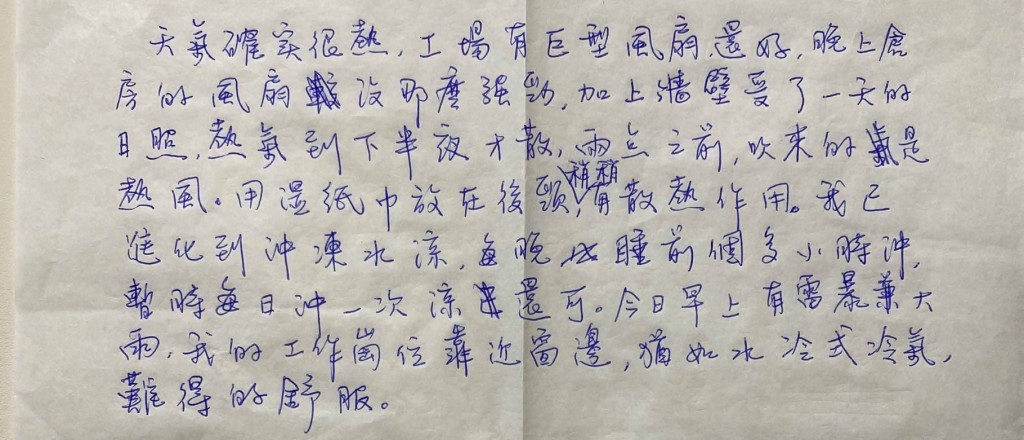 天氣確实很熱，工場有巨型風扇還好，晚上倉
房的風扇沒那麼强勁，加上牆壁受了一天的
日照，熱氣到下半夜才散，兩点之前，吹來的是
熱風。用濕紙巾放在後頸，稍稍有散熱作用。我已
進化到沖凍水涼，每晚睡前個多小時沖，
暫時每日沖一次涼還可。今日早上有雷暴兼大
雨，我的工作崗位靠近窗邊，猶如水冷式冷氣，
難得的舒服。